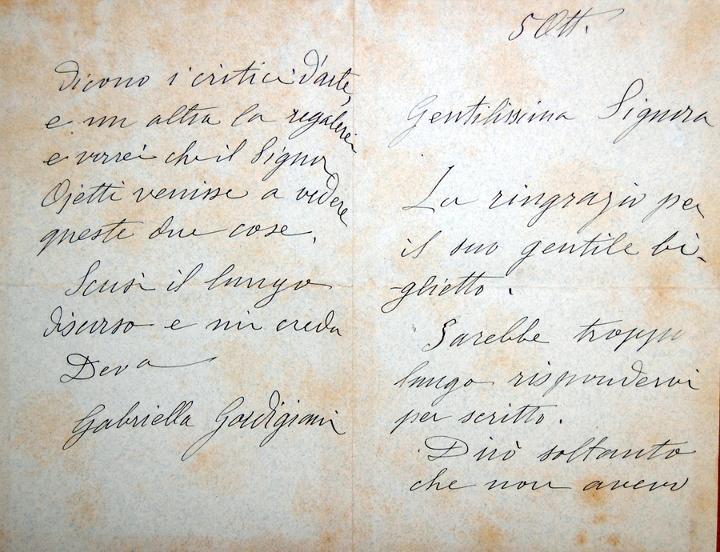 5 Ott.
Gentilissima Signora
La ringrazio per
il suo gentile bi-
glietto.
Sarebbe troppo
lungo rispondervi
per scritto.
Dirò soltanto
che non avevo
dicono i critici d'arte,
e un altra la regalerei
e vorrei che il Signor
Ojetti venisse a vedere
queste due cose.
Scusi il lungo
discorso e mi creda
Deva
Gabriella Gordigiani